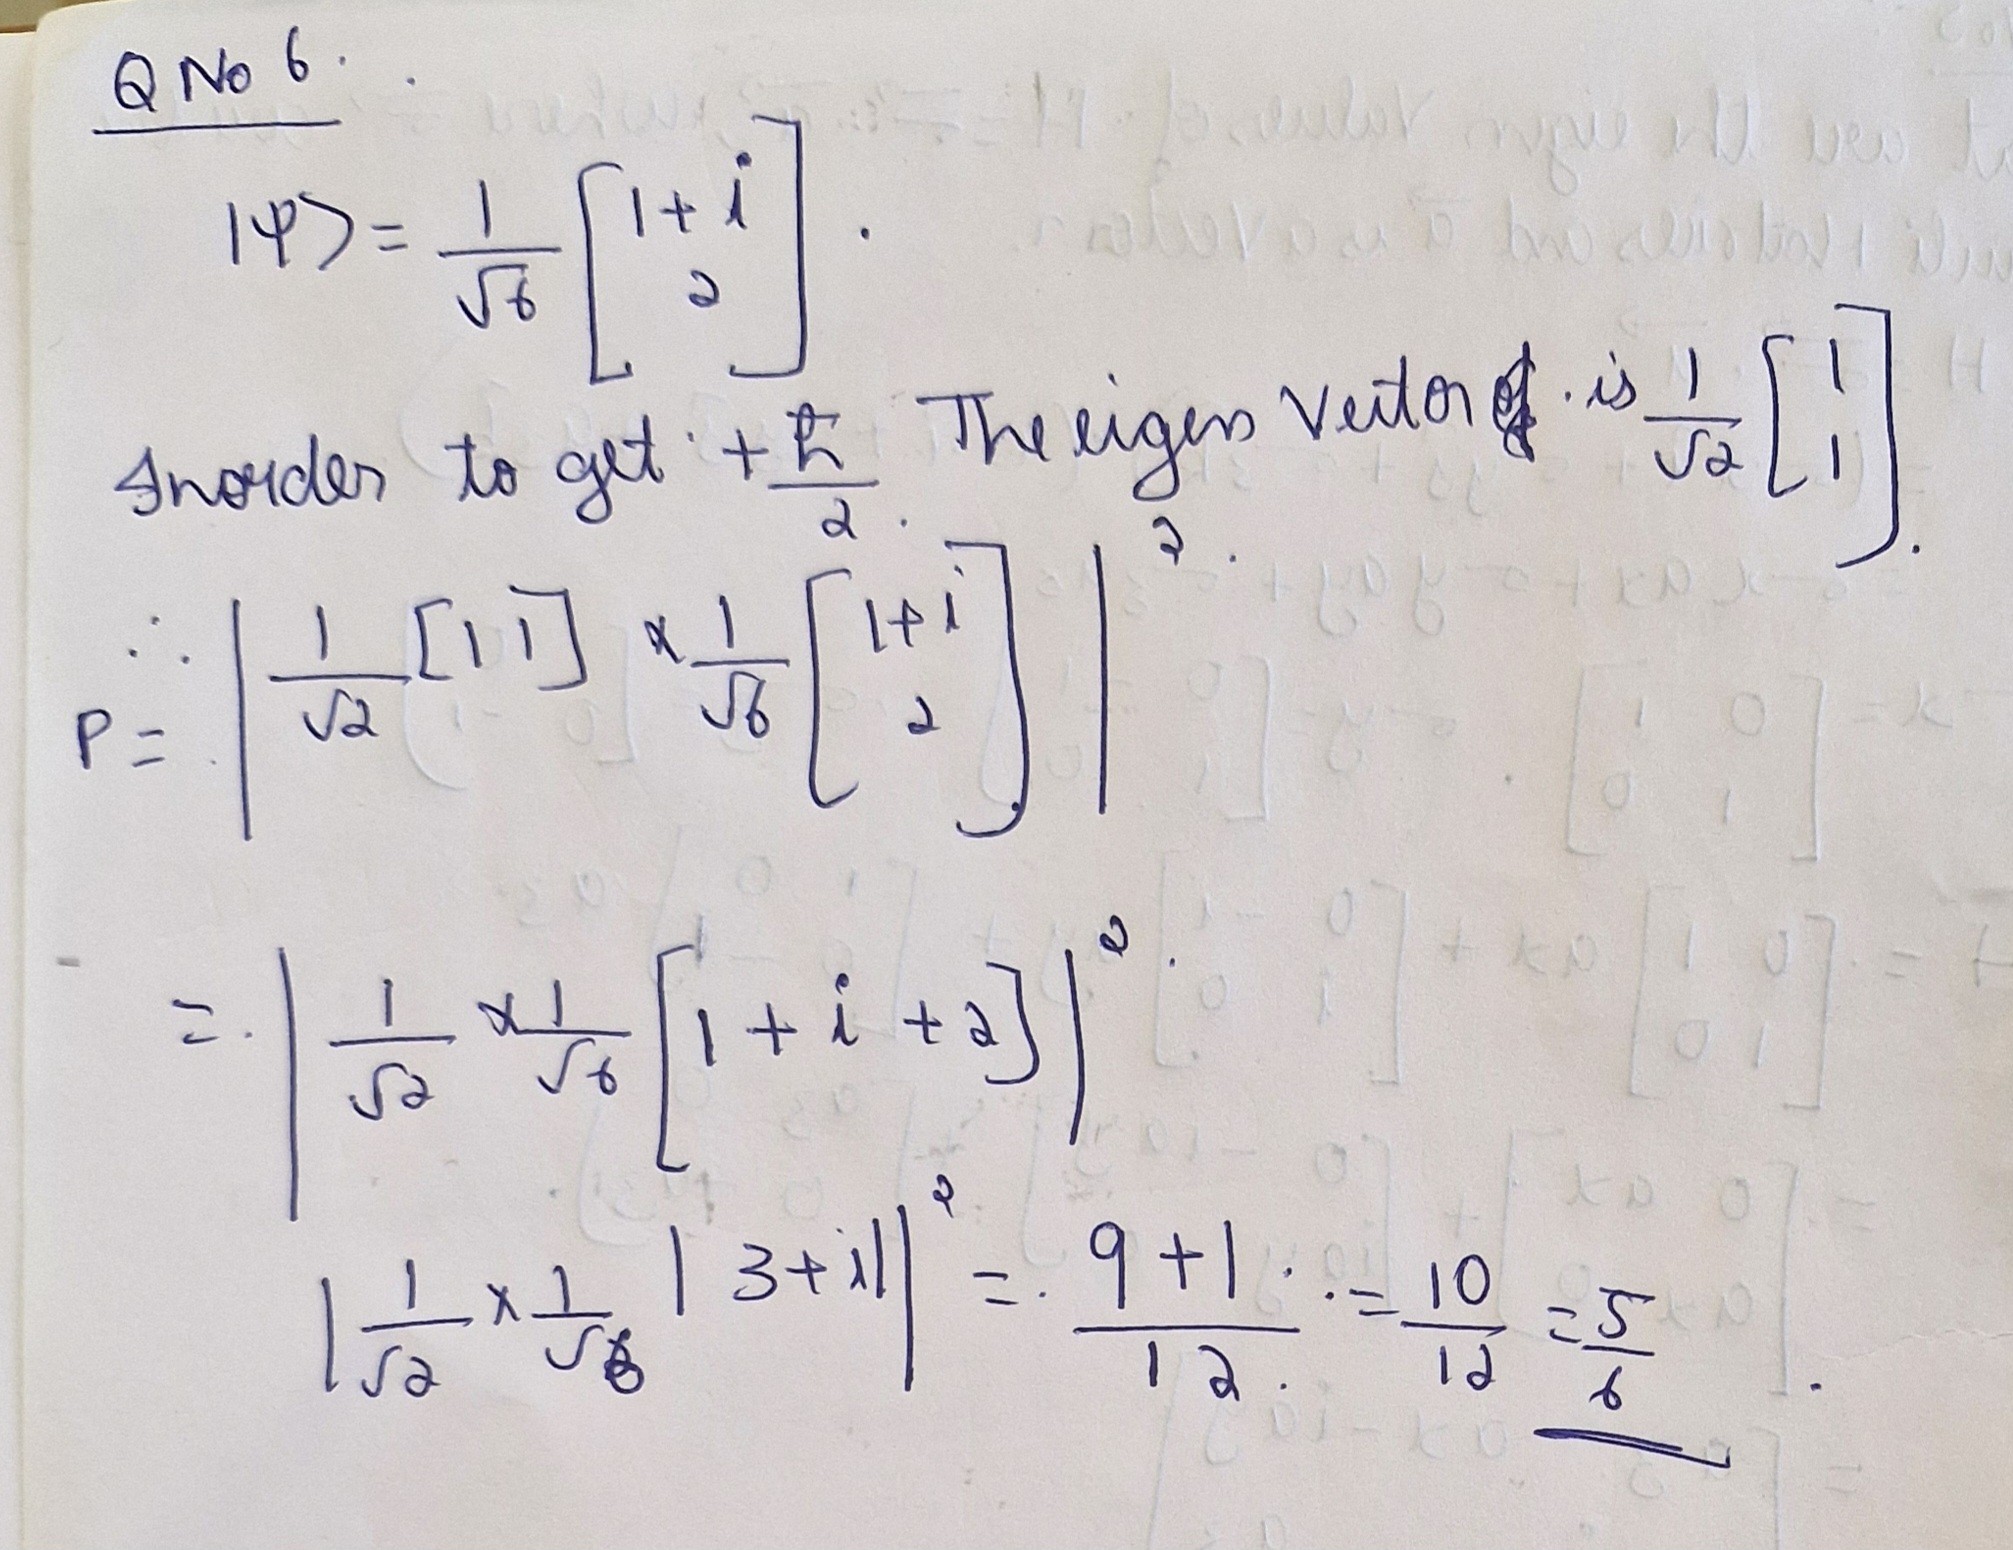 Q No 6.
|ψ> = 1/√6 [1+i
2].
Inorder to get +ℏ/2. The eigen vector is 1/√2 [1
1].
∴ P = |1/√2 [1 1] × 1/√6 [1+i
2]|².
= |1/√2 × 1/√6 [1+i+2]|².
|1/√2 × 1/√6 |3+i||² = 9+1/12 = 10/12 = 5/6.